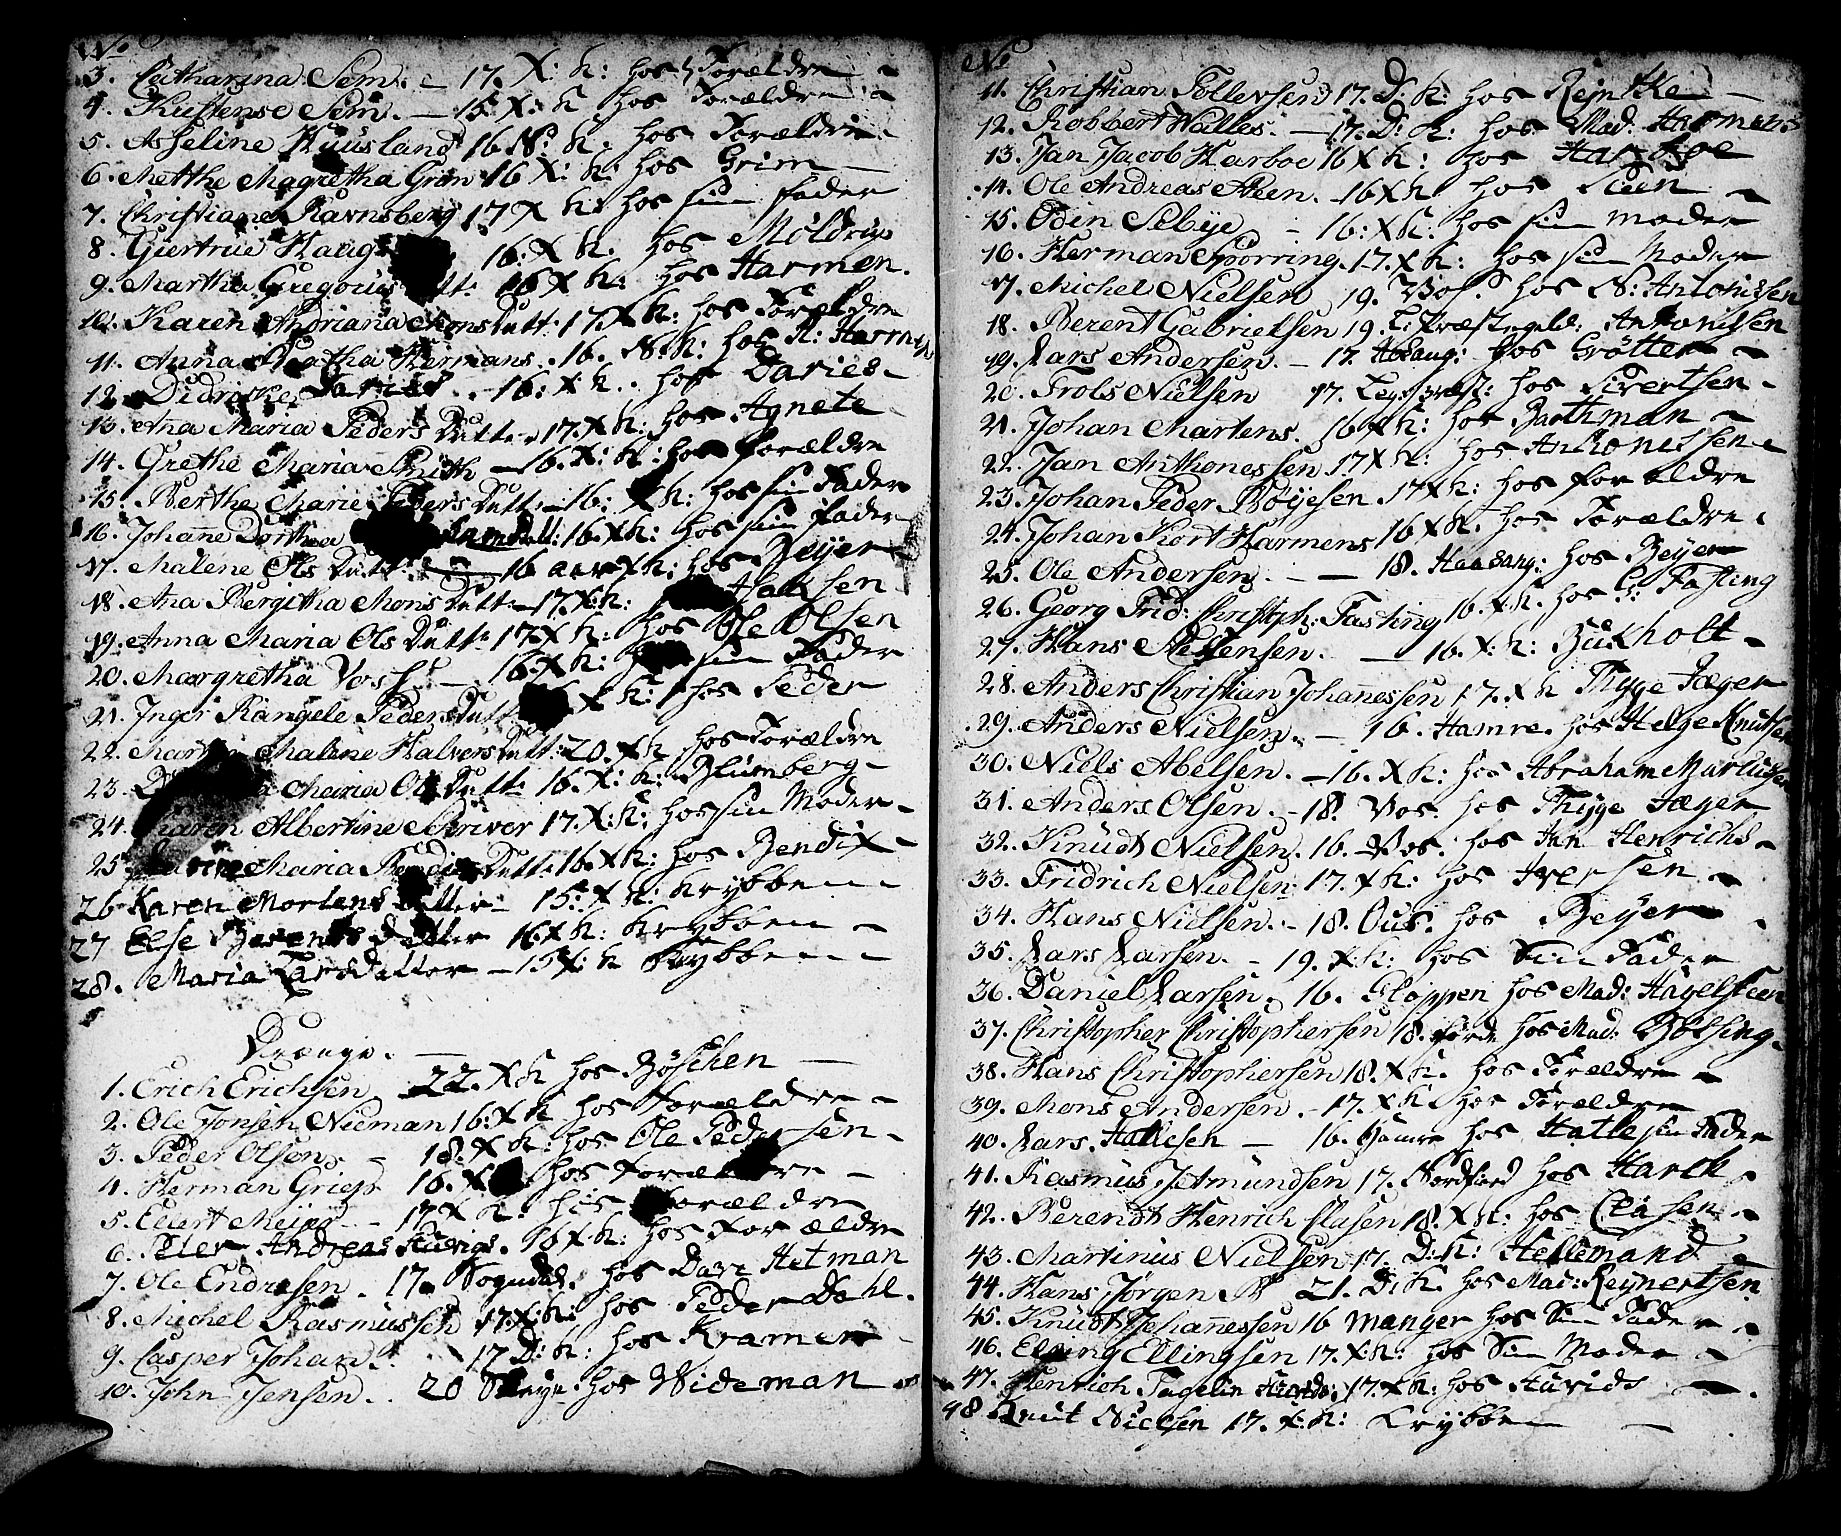 No
3. Catharina Sem. – 17. X: K: hos Forældre –
4. Sem. – 15. X: K hos Forældre –
5. Asseline Huusland 16 N: K: hos Forældre –
6. Metthe Magretha Grim 16 X: K: hos Grim –
7. Christiane Ravnsberg 17 X K: hos sin fader
8. Giertrue Haugs 16: X K. hos Møldrup
9. Martha Gregorius Dutt: 16 X K: hos Harmen.
10. Karen Andriana Mons Dutt: 17. X K: hos Forældre
11. Anna Agatha Hermans. 16. N. K: hos H: Harmen
12. Didriche Daries. – 16: X: K. hos Daries –
13. Ana Maria Peders Dutt – 17. X K: hos Agnete
14. Grethe Maria Smith – 16. X: K: hos forældre
15. Berthe Marie Peders Dutt – 16: X K: hos sin Fader
16. Johanne Dorthea 16. X K: hos sin fader
17. Malene Ols Dutt – 16 X K: hos Beyer –
18. Ana Bergitha Mons Dutt – 17. X K: Halksen
19. Anna Maria Ols Dutt: 17. X K: hos Ole Olsen
20. Margretha Voss – 16. X K: hos sin Fader
21. Inger Rangele Peders Dutt X K: hos Peder
22. Malene Halvers Dutt: 20. X K hos Forældre
23. Maria Ols Dutt 16. X: K: Blumberg –
24. Karen Albertine Schriver 17. X: K: hos sin Moder –
25 Maria Bendix Dutt 16. X K: hos Bendix –
26 Karen Mortens Datter – 15: X K: Krybben –
27 Else Berents Datter 16 X K: Krybben –
28. Maria Larsdatter – 15 X: K Krybben –
Drænge. –
1. Erich Erichsen 22. X K hos Bøschen –
2. Ole Jonsen Nieman 16. X K hos forældre –
3. Peder Olsen – 18. X K: hos Ole Pedersen –
4. Herman Grieg 16. X hos forældre –
5. Eilert Meyer – 17 X K: hos Forældre
6. Peter Andreas 16 X K: hos Forældre
7. Ole Endresen. 17. Sogndal. hos Hetman
8. Michel Rasmussen 17. X: K: hos Peder Dahl.
9. Casper Johan. 17 D: K: hos Kramer –
10. John Jensen. 20 hos Wideman –
No
11. Christian Tollevsen 17. D: K: hos Rejntke –
12. Robbert Walles. – 17. D: K: hos Mad. Harmens
13. Jan Jacob Harboe 16 X K: hos
14. Ole Andreas Steen. – 16 X K hos Steen –
15. Odin Sebye – 16: X K: hos sin moder
16. Herman Spørring. 17. X K: hos sin Moder
17. Michel Nielsen 19. Vos. hos N: Antonissen
18. Berent Gabrielsen 19. L: Præstegield: Antonissen
19. Lars Andersen. – 17. Haaug: hos Grøtter –
20. Trols Nielsen 17. hos Sivertsen –
21. Johan Martens. 16 X K: hos Barthman –
22. Jan Anthonessen 17 X K: hos Anthonessen –
23. Johan Peder Bøyesen 17 X K: hos forældre
24. Johan Kort Harmens 16 X K. hos Forældre.
25. Ole Andersen. – – 18. Haasaug: hos Beyer
26. Georg Frid: Christoph: Fasting 16. X: K. hos C: Fasting
27. Hans Steffensen. – 16. X: K: Bukholt –
28. Anders Christian Johannessen 17. X K Thyge Jæger
29. Anders Nielsen. – 16. Hamre. hos Helge Knutsen
30. Niels Abelsen. – 16. X K: hos Abraham
31. Anders Olsen. – 18. Vos. hos Thyge Jæger
32. Knudt Nielsen. 16. Vos. hos Jan Henrichs –
33. Fridrich Nielsen 17. X K: hos Iversen –
34. Hans Nielsen. – 18. Ous. hos Beyer –
35. Lars Larsen. – 19. X: K: hos Sin Fader
36. Daniel Larsen. 16. Gloppen hos Mad: Hagelsteen
37. Christopher Christophersen 18. førde hos Mad:
38. Hans Christophersen 18. X K. hos Forældre –
39. Mons Andersen. – 17. X K hos Forældre
40. Lars. Hallesen – 16. Hamre hos Halle sin Fader
41. Rasmus 17. Nordfiord hos Harck.
42. Berendt Henrich Clasen 18. X K: hos Clasen –
43. Martinus Nielsen 17. D: K: Hellemand –
44. Hans Jørgen 21. D: K. hos Mad: Reynertsen
45. Knudt Johannessen 16 Manger hos Sin Fader –
46. Elling Ellingsen 17. X K: hos Sin Moder –
47. Henrich 17. X K: hos –
48. Knut Nielsen 17. X: K: Krybben –